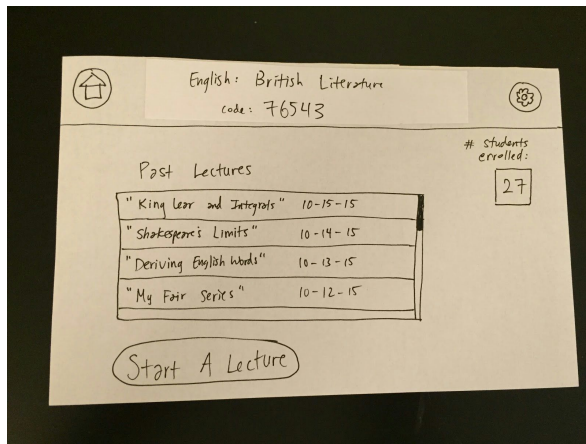 English: British Literature
code: 76543
# students
enrolled:
27
Past Lectures
"King Lear and Integrals" 10-15-15
"Shakespeare's Limits" 10-14-15
"Deriving English Words" 10-13-15
"My Fair Series" 10-12-15
Start A Lecture